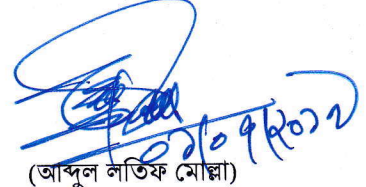 ০১/০৭/২০১২
(আব্দুল লতিফ মোল্লা)